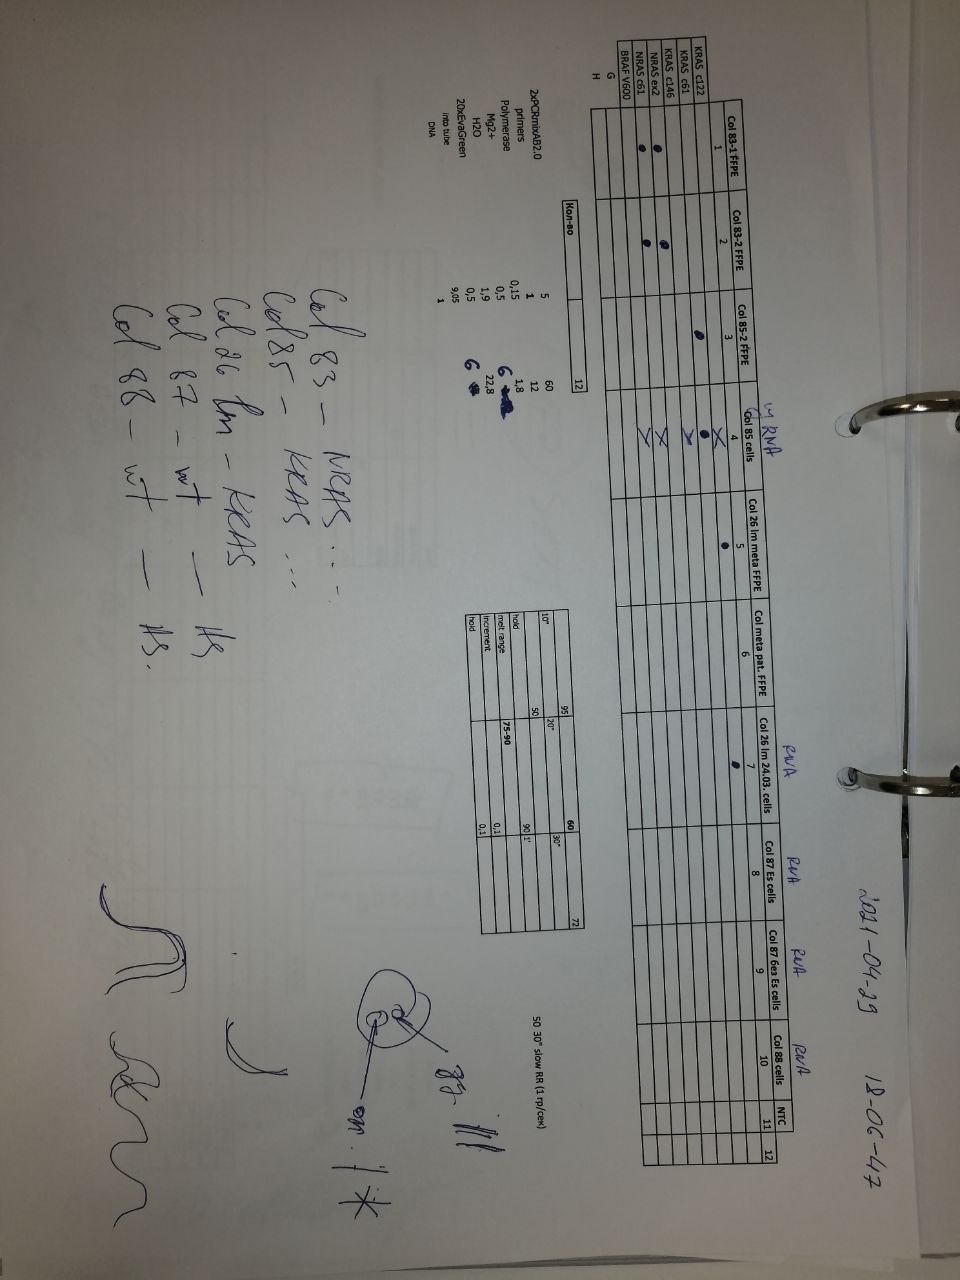 2021-04-29 18-06-47
RNA RNA RNA RNA RNA
Col 83-1 FFPE Col 83-2 FFPE Col 85-2 FFPE Col 85 cells Col 26 lm meta FFPE Col meta pat. FFPE Col 26 lm 24.03. cells Col 87 Es cells Col 87 без Es cells Col 88 cells NTC
1 2 3 4 5 6 7 8 9 10 11 12
KRAS c122
KRAS c61
KRAS c146
NRAS ex2
NRAS c61
BRAF V600
G
H
Кол-во 12
2xPCRmixAB2.0 5 60
primers 1 12
Polymerase 0,15 1,8
Mg2+ 0,5 6
H2O 1,9 22,8
20xEvaGreen 0,5 6
into tube 9,05
DNA 1
95 60 72
10" 20" 30"
50 90 1'
hold
melt range 75-90
increment 0,1
hold 0,1
50 30" slow RR (1 гр/сек)
Col 83 - NRAS ...
Col 85 - KRAS ...
Col 26 lm - KRAS
Col 87 - wt - HS
Col 88 - wt - HS.